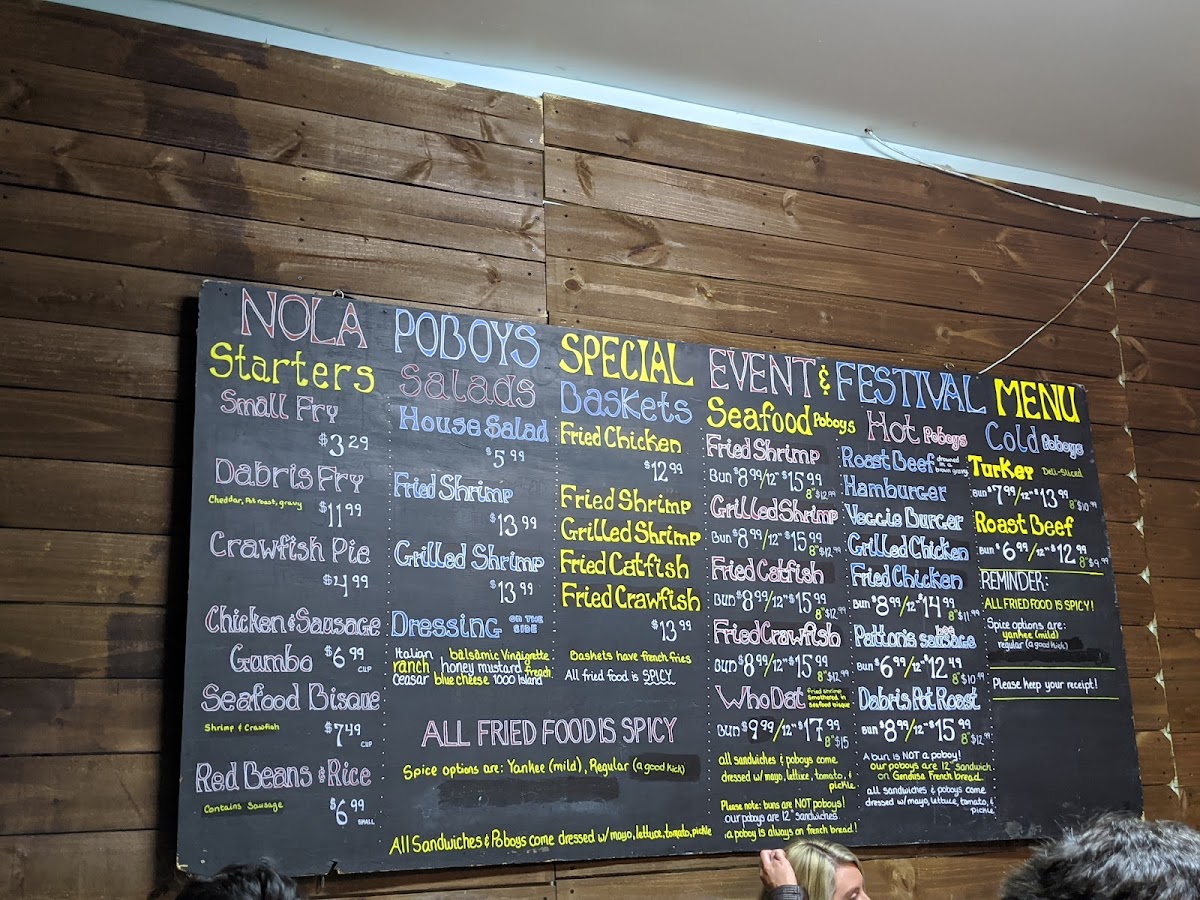 NOLA POBOYS SPECIAL EVENT & FESTIVAL MENU
Starters
Small Fry
$3.29
Dabris Fry
Cheddar, Pot roast, gravy $11.99
Crawfish Pie
$4.99
Chicken & Sausage
Gumbo $6.99 CUP
Seafood Bisque
Shrimp & Crawfish $7.49 CUP
Red Beans & Rice
Contains Sausage $6.99 SMALL
Salads
House Salad
$5.99
Fried Shrimp
$13.99
Grilled Shrimp
$13.99
Dressing ON THE SIDE
Italian balsamic Vinaigrette
ranch honey mustard french
ceasar blue cheese 1000 Island
Baskets
Fried Chicken
$12.99
Fried Shrimp
Grilled Shrimp
Fried Catfish
Fried Crawfish
$13.99
Baskets have french fries
All fried food is SPICY
ALL FRIED FOOD IS SPICY
Spice options are: Yankee (mild), Regular (a good kick)
All Sandwiches & Poboys come dressed w/mayo, lettuce, tomato, pickle
Seafood Poboys
Fried Shrimp
BUN $8.99/12" $15.99
8" $12.99
Grilled Shrimp
BUN $8.99/12" $15.99
8" $12.99
Fried Catfish
BUN $8.99/12" $15.99
8" $12.99
Fried Crawfish
BUN $8.99/12" $15.99
8" $12.99
Who Dat fried shrimp smothered in seafood bisque
BUN $9.99/12" $17.99
8" $15
all sandwiches & poboys come
dressed w/mayo, lettuce, tomato, &
pickle
Please note: buns are NOT poboys!
our poboys are 12" sandwiches
a poboy is always on french bread!
Hot Poboys
Roast Beef drowned in a brown gravy
Hamburger
Veggie Burger
Grilled Chicken
Fried Chicken
BUN $8.99/12" $14.99
8" $11.99
Patton's hot sausage
BUN $6.99/12" $12.49
8" $10.49
Dabris Pot Roast
BUN $8.99/12" $15.99
8" $12.99
A bun is NOT a poboy!
our poboys are 12" sandwich
on Gendusa French bread
all sandwiches & poboys come
dressed w/mayo, lettuce, tomato, &
pickle
Cold Poboys
Turkey Deli-Sliced
BUN $7.99/12" $13.99
8" $10.99
Roast Beef
BUN $6.99/12" $12.99
8" $9.99
REMINDER:
ALL FRIED FOOD IS SPICY!
Spice options are:
yankee (mild)
regular (a good kick)
Please keep your receipt!